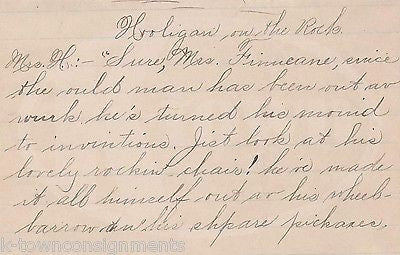 Hooligan on the Rock.
Mrs. H:- "Sure, Mrs. Finneane, since
the ould man has been out av
wurk he's turned his moind
to invintions. Jist look at his
lovely rockin' chair! he've made
it all himself out av his wheel-
barrow an his shpare pickaxes.
k-townconsignments